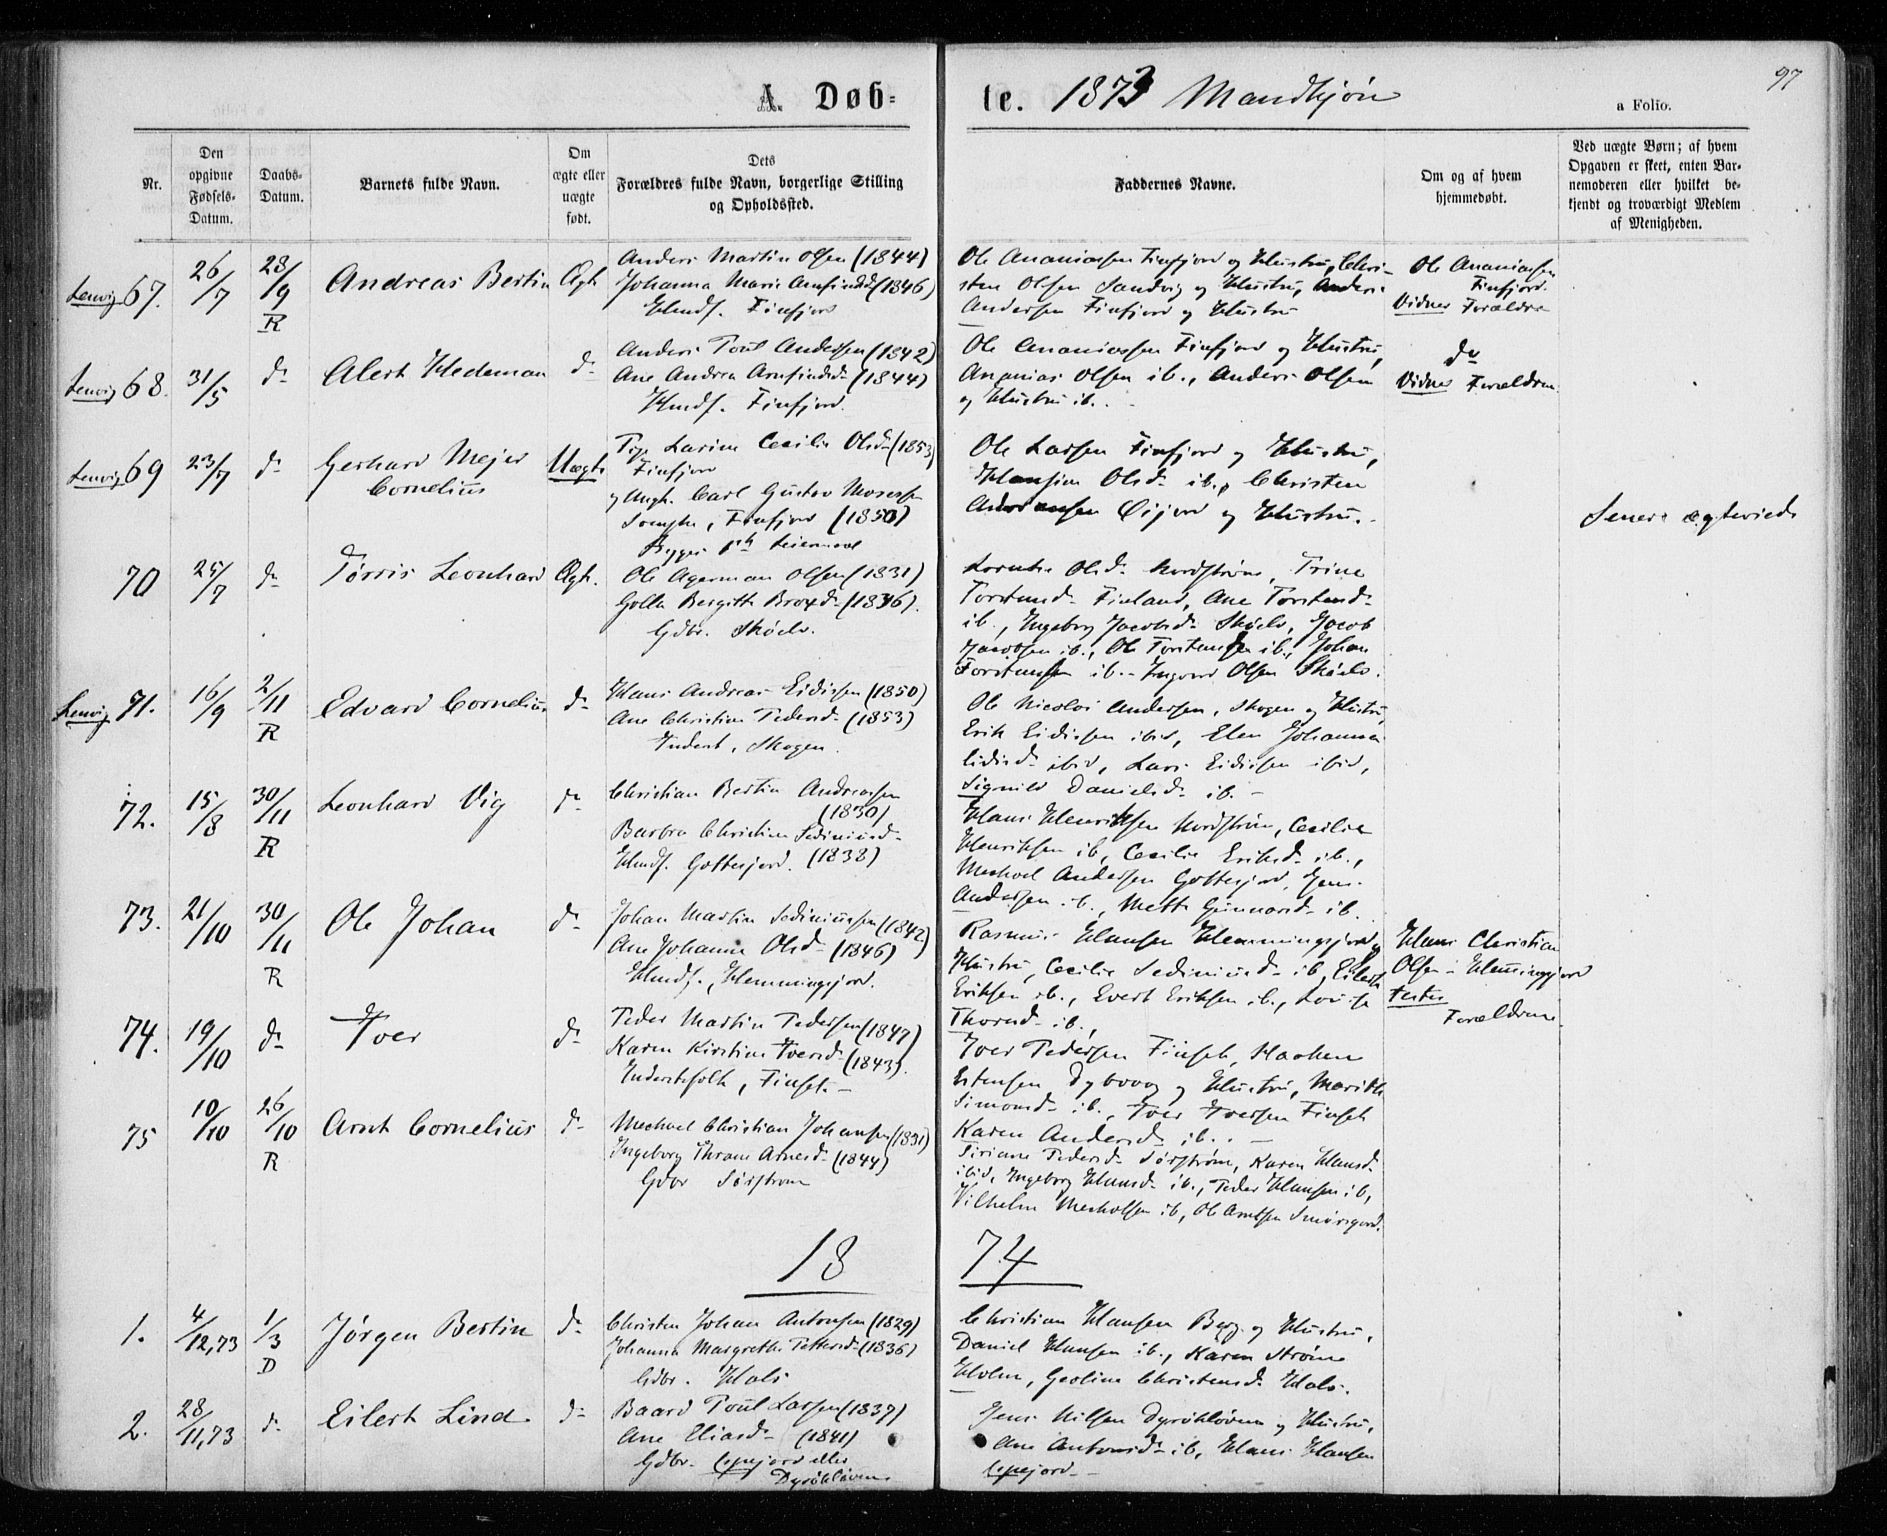 97
A. Døb-
te. 1873 Mandkjøn
a Folio.
Nr.
Den
opgivne
Fødsels-
Datum.
Daabs-
Datum.
Barnets fulde Navn.
Om
ægte eller
uægte
født.
Dets
Forældres fulde Navn, borgerlige Stilling
og Opholdssted.
Faddernes Navne.
Om og af hvem
hjemmedøbt.
Ved uægte Børn; af hvem
Opgaven er skeet, enten Bar-
nemoderen eller hvilket be-
kjendt og troværdigt Medlem
af Menigheden.
Lenvig 67.
26/7
28/9
R
Andreas Bertin
Ægt.
Anders Martin Olsen (1844)
Johanna Marie Arnfinsd (1846)
Hmdf. Finfjord
Ole Ananiassen Finfjord og Hustru, Chri-
sten Olsen Sandvig og Hustru, Anders
Andersen Finfjord og Hustru
Ole Ananiassen
Finfjord.
Vidner Forældre
Lenvig 68.
31/5
do
Alert Hedeman
do
Anders Poul Andersen (1842)
Ane Andrea Arnfinsdr (1844)
Hmdf. Finfjord.
Ole Ananiassen Finfjord og Hustru,
Ananias Olsen ib., Anders Olsen
og Hustru ib.
do
Vidner Forældrene
Lenvig 69
23/7
do
Gerhard Mejer
Cornelius
Uægte
Pige Larine Cecilie Olsdr (1853)
Finfjord
og Ungk. Carl Gustav Mosessen
, Finfjord (1850)
Begges 1ste Leiermaal
Ole Larsen Finfjord og Hustru,
Hansine Olsdr ib., Christen
Adriansen Øijord og Hustru.
Senere ægteviede
70
25/7
do
Tørris Leonhard
Ægt.
Ole Agerman Olsen (1831)
Golla Bergitte Broxdr (1836).
Gdbr. Skøelv.
Lorentse Olsdr Nordstrøm, Trine
Torstensdr Finland, Ane Torstensdr
ib., Ingeborg Jacobsdr Skøelv, Jacob
Jacobsen ib., Ole Torstensen ib., Johan
Torstensen ib. - Ingvard Olsen Skøelv.
Lenvig 71.
16/9
2/11
R
Edvard Cornelius
do
Hans Andreas Eidissen (1850)
Ane Christine Pedersdr (1853)
Inderst, Skogen.
Ole Nicolai Andersen, Skogen og Hustru,
Erik Eidissen ibid, Elen Johanna
Eidisdr ibid, Lars Eidissen ibid,
Signild Danielsdr ib. -
72.
15/8
30/11
R
Leonhard Vig
do
Christian Bertin Andreassen
(1830)
Barbra Christine Sediniusdr
Hmdf. Gottesjord. (1838)
Hans Henriksen Nordstrøm, Cecilie
Henriksen ib, Cecilie Eriksdr ib.,
Mechael Andersen Gottesjord, Jens
Andersen ib., Mette Gunnarsdr ib.
73.
21/10
30/11
R
Ole Johan
do
Johan Martin Sediniussen (1842)
Ane Johanna Olsdr (1846)
Hmdf., Hemmingsjord.
Rasmus Hansen Hemmingsjord og
Hustru, Cecilie Sediniusdr ib, Eilert
Eriksen ib., Evert Eriksen ib., Lovise
Thorsdr ib.,
Hans Christian
Olsen i Hemingsjord
testes
Forældrene.
74.
19/10
do
Iver
do
Peder Martin Pedersen (1847)
Karen Kirstine Iversdr (1843).
Inderstefolk, Finset. -
Iver Pedersen Finset, Haaken
Estensen Dybvaag og Hustru, Marith
Simonsdr ib., Iver Iversen Finset
Karen Andersdr ib. -
75
10/10
26/10
R
Arnt Cornelius
do
Mechael Christian Johansen (1831)
Ingeborg Thrane Arnesdr (1844)
Gdbr Sørstrøm
Siriane Pedersdr Sørstrøm, Karen Hansdr
ibid, Ingeborg Hansdr ib., Peder Hansen ib,
Vilhelm Mechelsen ib, Ole Arntsen Smørsgrd.
18
74
1.
4/12,73
1/3
D
Jørgen Bertin
do
Christen Johan Antonsen (1829)
Johanna Margrethe Pettersdr (1836)
Gdbr. Hals
Christian Hansen Berg og Hustru,
Daniel Hansen ib., Karen Strøm
Holm, Geoline Christensdr Hals.
2.
28/11,73
do
Eilert Lind.
do
Baard Poul Larsen (1837)
Ane Eliasdr (1841)
Gdbr. Espejord eller
Dyrøkløven
Jens Nilsen Dyrøkløven og Hustru,
Ane Antonsdr ib, Hans Hansen
Espejord. -